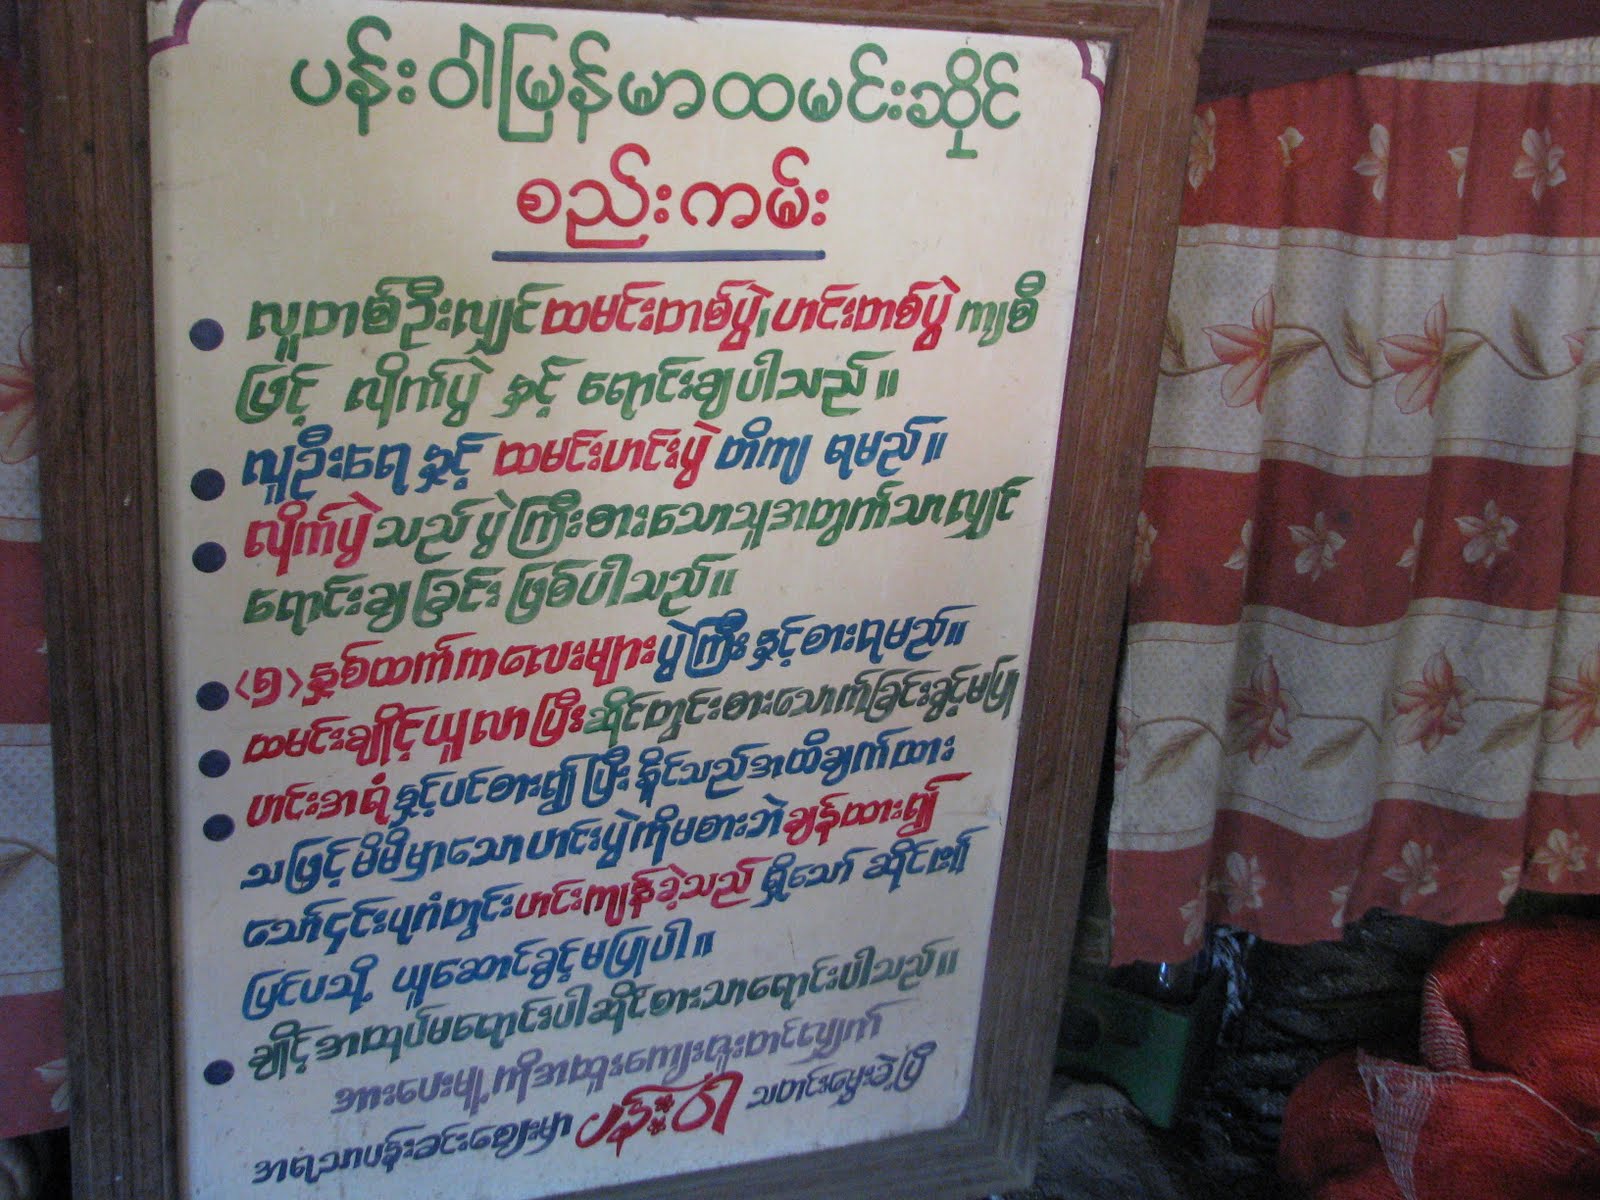 ပန်းဝါမြန်မာထမင်းဆိုင်
စည်းကမ်း
လူတစ်ဦးလျှင်ထမင်းတစ်ပွဲ၊ဟင်းတစ်ပွဲ ကျစီ
ဖြင့် လိုက်ပွဲ နှင့် ရောင်းချပါသည်။
လူဦးရေ နှင့် ထမင်းဟင်းပွဲ တိကျ ရမည်။
လိုက်ပွဲသည် ပွဲကြီးစားသောသူအတွက်သာလျှင်
ရောင်းချခြင်းဖြစ်ပါသည်။
(၅)နှစ်ထက်ကလေးများပွဲကြီးနှင့်စားရမည်။
ထမင်းချိုင့်ယူလာပြီးဆိုင်တွင်းစားသောက်ခြင်းခွင့်မပြု
ဟင်းအရံနှင့်ပင်စား၍ပြီးနိုင်သည်အထိချက်ထား
သဖြင့်မိမိမှာသောဟင်းပွဲကိုမစားဘဲချန်ထား၍
သော်၎င်းပုဂံတွင်းဟင်းကျန်ခဲ့သည်ရှိသော် ဆိုင်၏
ပြင်ပသို့ ယူဆောင်ခွင့်မပြုပါ။
ချိုင့်အထုပ်မရောင်းပါဆိုင်စားသာရောင်းပါသည်။
အားပေးမှု့ကိုအထူးကျေးဇူးတင်လျှက်
အရသာပန်းခင်းဈေးမှာ ပန်းဝါ သတင်းမွှေးခဲ့ပြီ